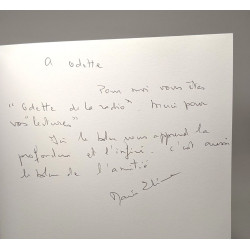 A Odette
Pour moi vous êtes
"Odette de la radio". Merci pour
vos "lectures"
Ici le bleu nous apprend la
profondeur et l'infini. c'est aussi
le bleu de l'amitié